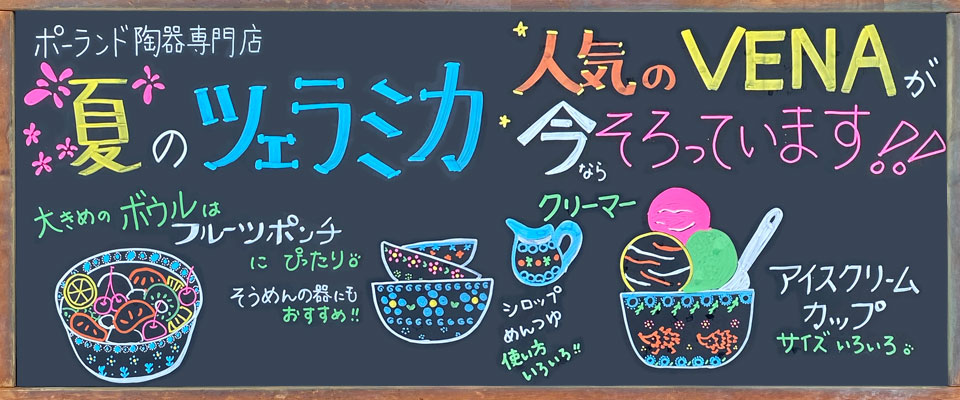 ポーランド陶器専門店
夏のツェラミカ
人気のVENAが
今ならそろっています!!
大きめのボウルは
フルーツポンチ
にぴったり。
そうめんの器にも
おすすめ!!
クリーマー
シロップ
めんつゆ
使い方
いろいろ!!
アイスクリーム
カップ
サイズいろいろ。